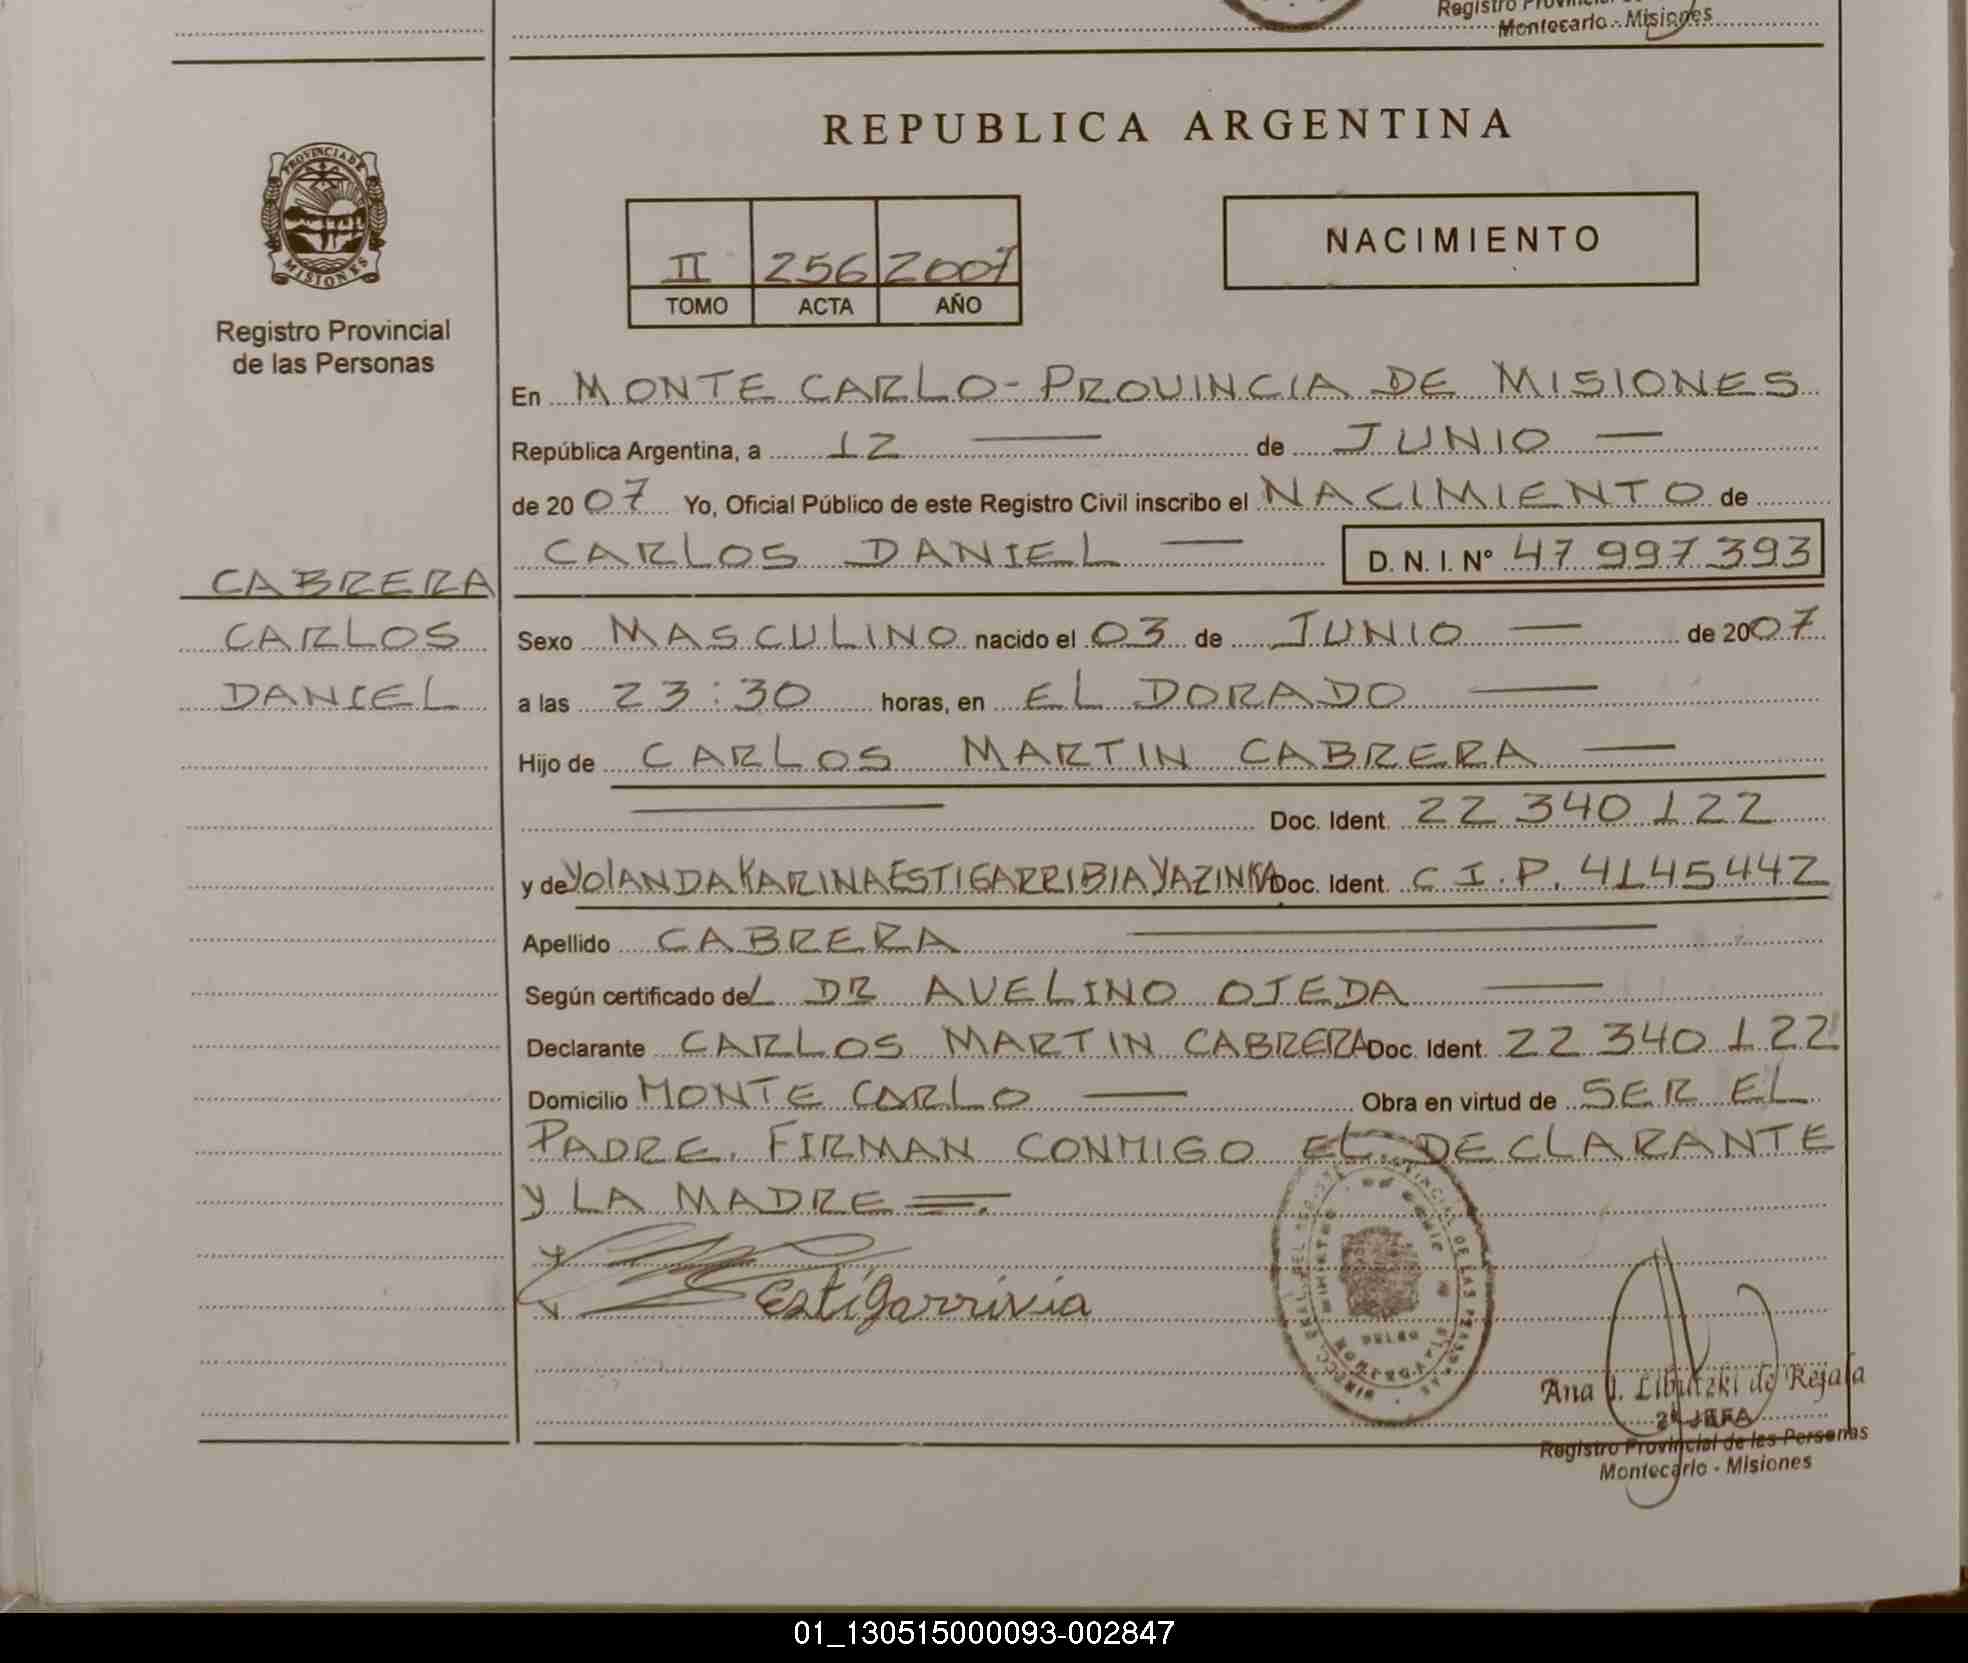 Registro Provincial
Montecarlo - Misiones
REPUBLICA ARGENTINA
PROVINCIA DE
MISIONES
Registro Provincial
de las Personas
II 256 2007
TOMO ACTA AÑO
NACIMIENTO
En MONTE CARLO - PROVINCIA DE MISIONES
República Argentina, a 12 — de JUNIO —
de 2007 Yo, Oficial Público de este Registro Civil inscribo el NACIMIENTO de
CARLOS DANIEL — D. N. I. Nº 47 997 393
CABRERA
CARLOS
DANIEL
Sexo MASCULINO nacido el 03 de JUNIO — de 2007
a las 23:30 horas, en EL DORADO —
Hijo de CARLOS MARTIN CABRERA —
— Doc. Ident. 22 340 122
y de YOLANDA KARINA ESTIGARRIBIA YAZINKA Doc. Ident. C.I.P. 4145442
Apellido CABRERA —
Según certificado del DR AVELINO OJEDA —
Declarante CARLOS MARTIN CABRERA Doc. Ident. 22 340 122
Domicilio MONTE CARLO — Obra en virtud de SER EL
PADRE. FIRMAN CONMIGO EL DECLARANTE
Y LA MADRE =.
Estigarrivia
Ana J. Libutzki de Rejala
2ª JEFA
Registro Provincial de las Personas
Montecarlo - Misiones
01_130515000093-002847